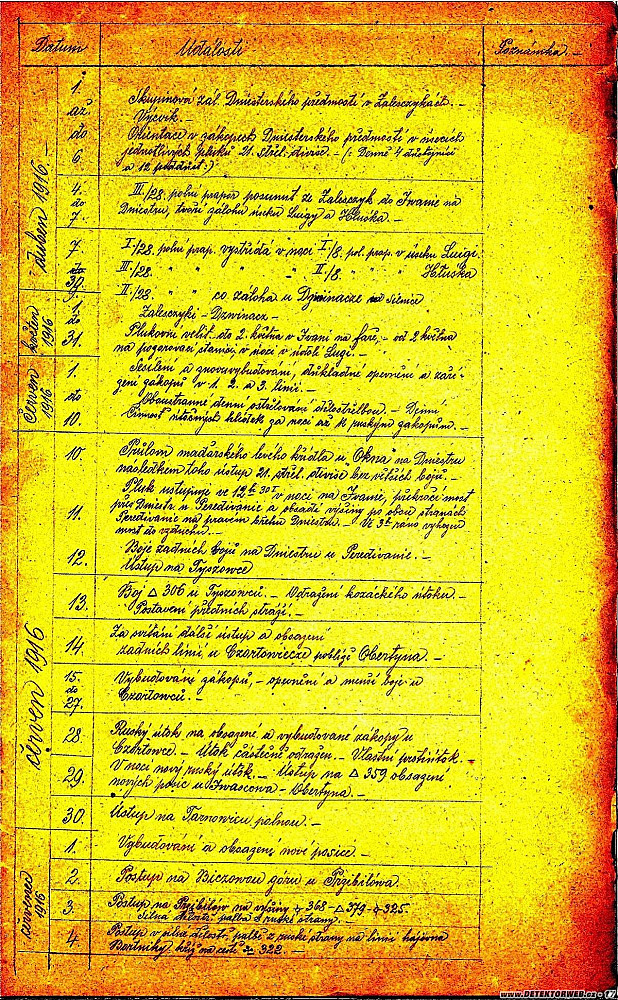 Datum Události Poznámka. -
duben 1916. -
1. až do 6.
Skupinová zál. Dniesterského předmostí v Zalesczykách. -
Výcvik. -
Orientace v zákopech Dniesterského předmostí v úsecích
jednotlivých pluků 21. střel. divise. - (: Denně 4 důstojníci
a 12 poddůst. :)
4. do 7.
III./28. polní prapor posunut ze Zalesczyk do Ivanie na
Dniestru, tvoří zálohu úseku Luigy a Hluška. -
7. do 30.
I./28. polní prap. vystřídá v noci I/8. pol. prap. v úseku Luigi.
III./28. " " " " II/8. " " " Hluška
II./28. " " co záloha u Dzwinacze
květen 1916
1. do 31.
Zalesczyki - Dzwinacz -
Plukovní velit. do 2. května v Ivani na faře, - od 2 května
na pozorovací stanici, v noci v údolí Lugi. -
červen 1916
1. do 10.
Sesílení a znovuvybudování, důkladné opevnění a zaří-
zení zákopů v 1. 2. a 3. linii. -
Oboustranné denní ostřelování dělostřelbou. - Denní
činnost útočných hlídek za noci až k ruským zákopům. -
červen 1916
10.
Průlom maďarského levého křídla u "Okna" na Dniestru
následkem toho ústup 21. střel. divise bez větších bojů. -
11.
Pluk ustupuje ve 12h 30 v noci na Ivanie, překročí most
přes Dniestr u Peredivanie a obsadí výšiny po obou stranách
Peredivanie na pravém břehu Dniestru. - Ve 3h ráno vyhozen
most do vzduchu. -
12.
Boje zadních vojů na Dniestru u Peredivanie. -
Ústup na Tyszowce
13.
Boj △ 306 u Tyszowců. - Odražení kozáckého útoku. -
Postavení předních stráží. -
14.
Za svítání další ústup a obsazení
zadních linií u Czortowiecze poblíže Obertyna. -
15. do 27.
Vybudování zákopů, - opevnění a menší boje u
Czortowců. -
28.
Ruský útok na obsazené a vybudované zákopy u
Czortowce. - Útok částečně odražen. - Vlastní protiútok.
29.
V noci nový ruský útok. - Ústup na △ 359 obsazení
nových posic u - Obertyna. -
30.
Ústup na Tarnowicu polnou. -
červenec 1916
1.
Vybudování a obsazení nové posice. -
2.
Postup na Biczowou góru u Przibilowa.
3.
Postup na Przibilów na výšiny 368 - △ 379 - 325.
Silná dělostř. palba z ruské strany
4.
Postup v silné dělostř. palbě z ruské strany na linii hájovna
Bortniky kříž na cestě 322. -
www.DETEKTORWEB.cz